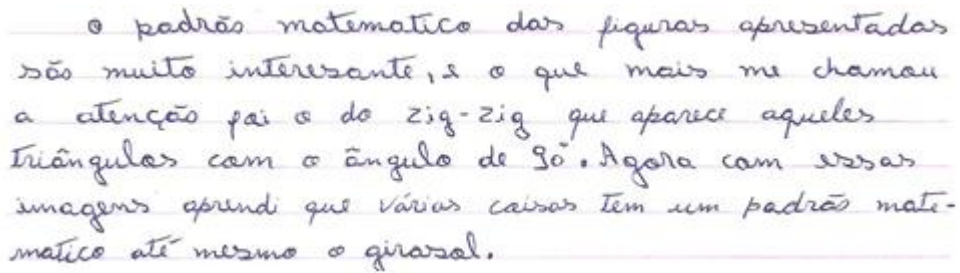 o padrão matematico das figuras apresentadas
são muito interesante, e o que mais me chamou
a atenção foi o do zig-zig que aparece aqueles
triângulos com o ângulo de 90°. Agora com essas
imagens aprendi que várias coisas tem um padrão mate-
matico até mesmo o girasol.